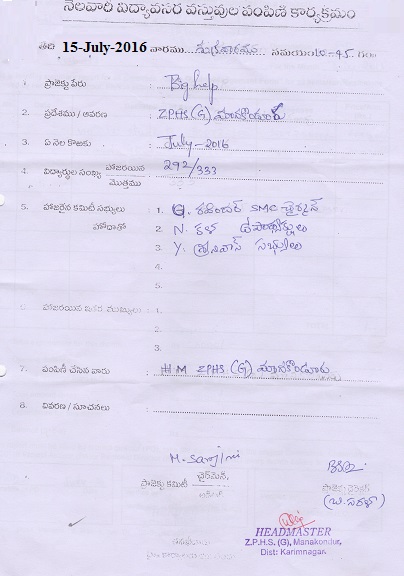 నెలవారి విద్యావసర వస్తువుల పంపిణి కార్యక్రమం
తేది 15-July-2016 వారము శుక్రవారము సమయం 10-45
1. ప్రాజెక్టు పేరు : Big help
2. ప్రదేశము / ఆవరణ : Z.P.H.S (G) మానకొండూరు
3. ఏ నెల కొఱకు : July-2016
4. విద్యార్థుల సంఖ్య హాజరయిన / మొత్తము : 292/333
5. హాజరైన కమిటీ సభ్యులు : 1. G. రవీందర్ SMC చైర్మన్
హోదాతో 2. N. కళ ఉపాధ్యాయులు
3. Y. శ్రీనివాస్ సభ్యులు
4.
5.
6. హాజరయిన ఇతర ముఖ్యులు : 1.
2.
3.
7. పంపిణి చేసిన వారు : HM Z.P.H.S. (G) మానకొండూరు
8. వివరణ / సూచనలు :
చైర్మెన్,
ప్రాజెక్టు కమిటీ
ప్రాజెక్టు డైరెక్టర్
HEADMASTER
Z.P.H.S. (G), Manakondur,
Dist: Karimnagar.